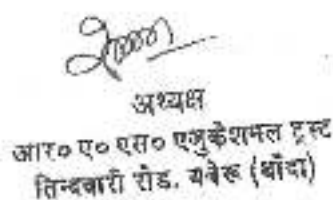 अध्यक्ष
आर० ए० एस० एजुकेशनल ट्रस्ट
तिन्दवारी रोड, बबेरू (बाँदा)